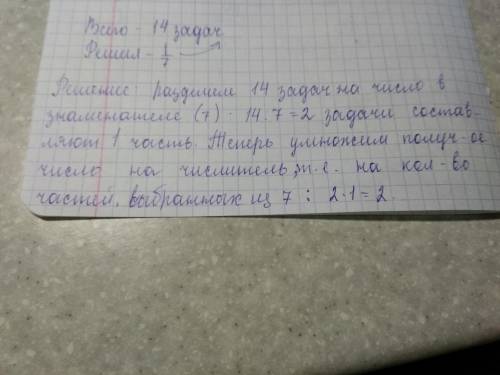 Всего - 14 задач
Решил - 1/7
Решение: разделим 14 задач на число в
знаменателе (7) · 14:7=2 задачи состав-
ляют 1 часть. Теперь умножим получ-ое
число на числитель, т.е. на кол-во
частей, выбранных из 7 : 2·1=2.